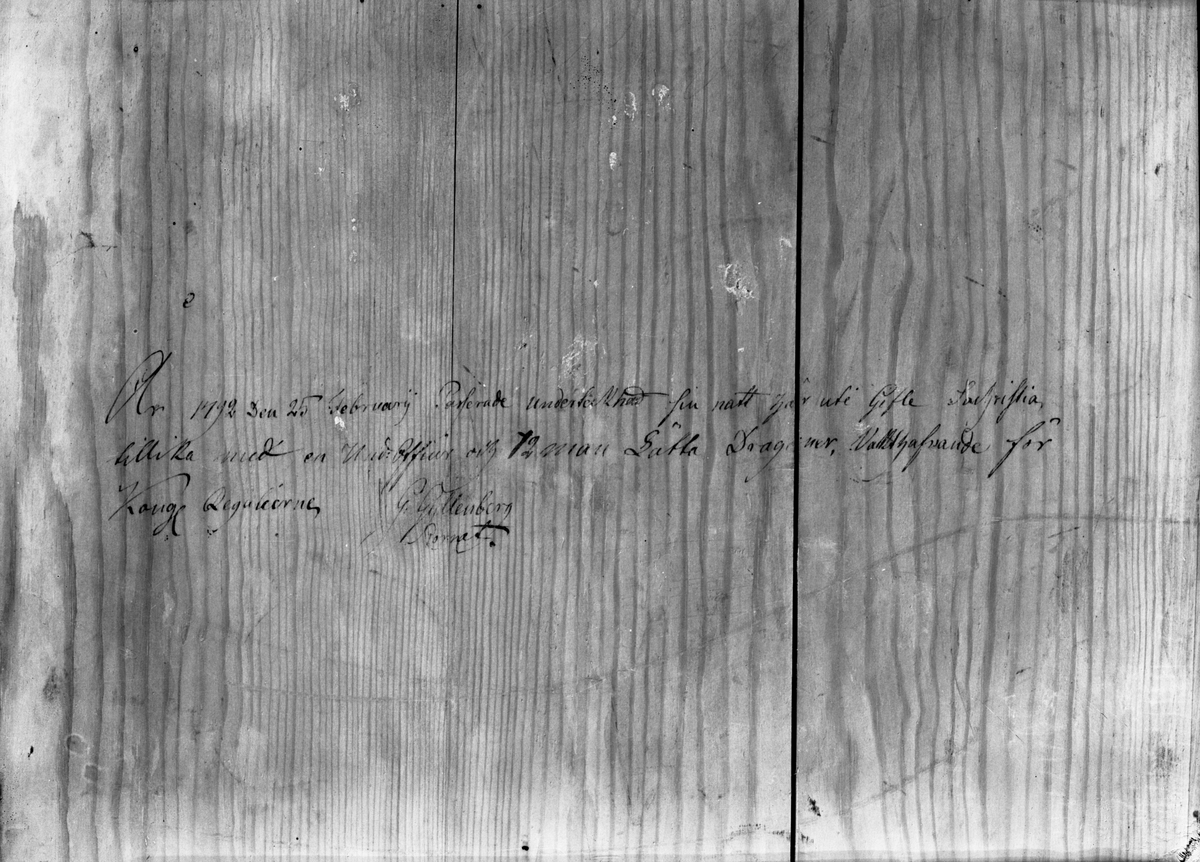 År 1792 Den 25 Februarij Passerade undertecknad sin natt här uti Gefle Sachristia,
tillika med en Und: Officir och 12 man Lätta Dragoner, Vakthafvande för
Kongl Regalierne, G. Gyllenberg
Cornet.